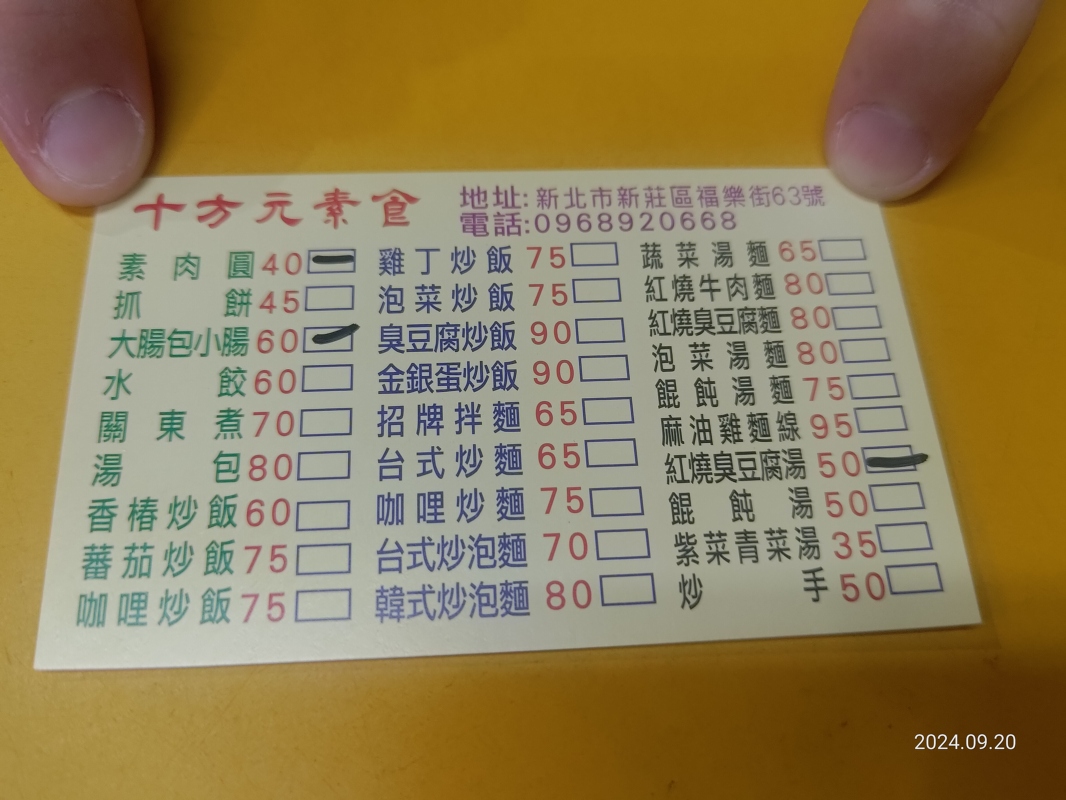 十方元素食
地址:新北市新莊區福樂街63號
電話:0968920668
素肉圓40
抓餅45
大腸包小腸60
水餃60
關東煮70
湯包80
香椿炒飯60
蕃茄炒飯75
咖哩炒飯75
雞丁炒飯75
泡菜炒飯75
臭豆腐炒飯90
金銀蛋炒飯90
招牌拌麵65
台式炒麵65
咖哩炒麵75
台式炒泡麵70
韓式炒泡麵80
蔬菜湯麵65
紅燒牛肉麵80
紅燒臭豆腐麵80
泡菜湯麵80
餛飩湯麵75
麻油雞麵線95
紅燒臭豆腐湯50
餛飩湯50
紫菜青菜湯35
炒手50
2024.09.20